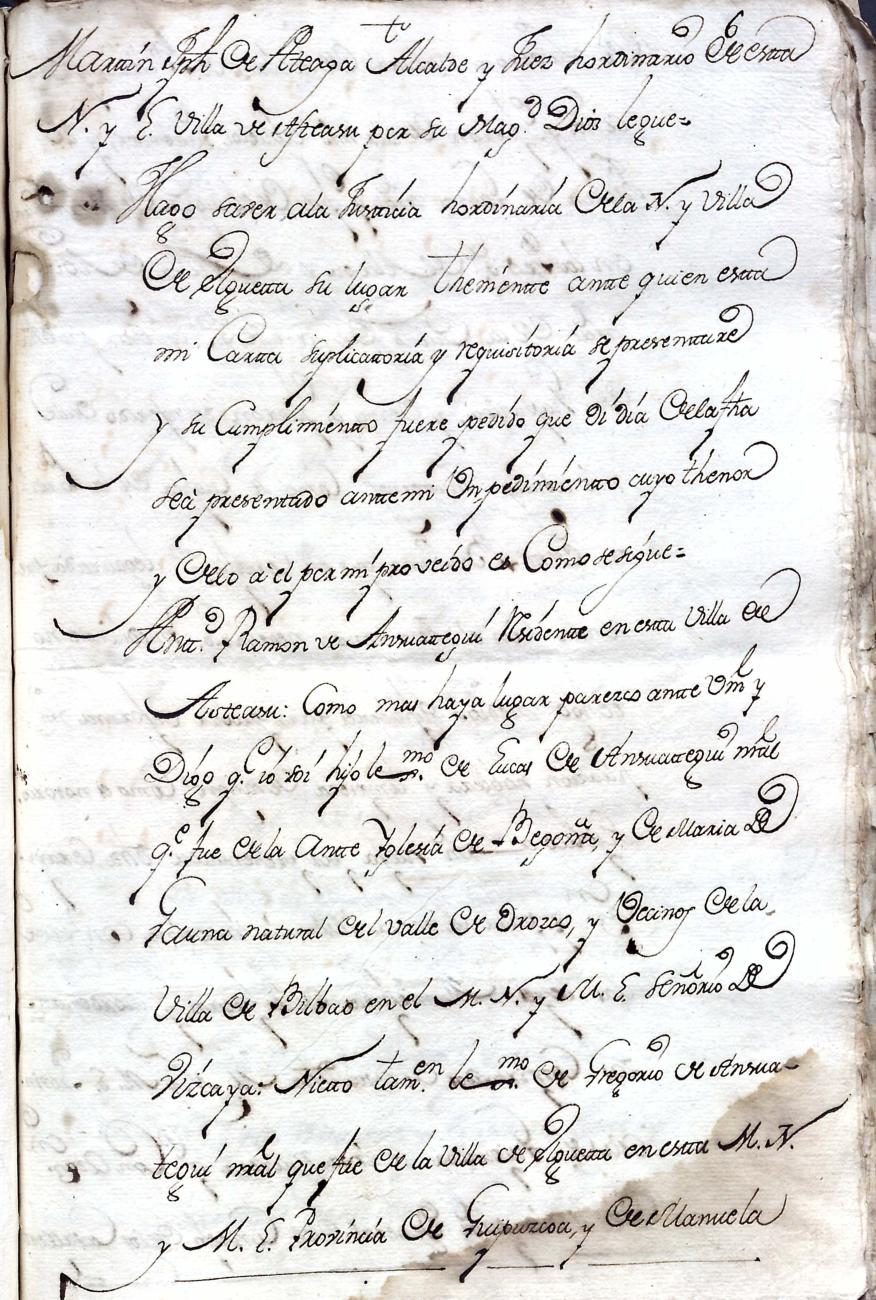 Martin Jph de Ateaga Alcalde y Juez hordinario de esta
N. y L. Villa de Asteasu por su Mag.d Dios le gue=
Hago saver ala Justicia hordinaria de la N. y Villa
de Elguetta su lugar themiente antte quien estta
mi Cartta suplicattoria y requisitoria se presenttare
y su Cumplimientto fuere pedido que oi dia de la fha
se à presenttado antte mi Un pedimientto cuyo thenor
y de lo à el por mi proveido es Como se sigue=
Antt.o Ramon de Ansuattegui Residentte en estta Villa de
Asteasu: Como mas haya lugar parezco ante Vm y
Digo q.e io soi hijo le.mo de Lucas de Ansuattegui nral
q.e fue de la Antte Yglesia de Begoña, y de Maria de
Gauna natural del valle de Orozco, y Vecinos de la
Villa de Bilbao en el M. N. y M. L. Señorio de
Vizcaya: Nietto tam.en le.mo de Gregorio de Ansua-
tegui nral que fue de la Villa de Elguetta en estta M. N.
y M. L. Provincia de Guipuzcoa, y de Manuela